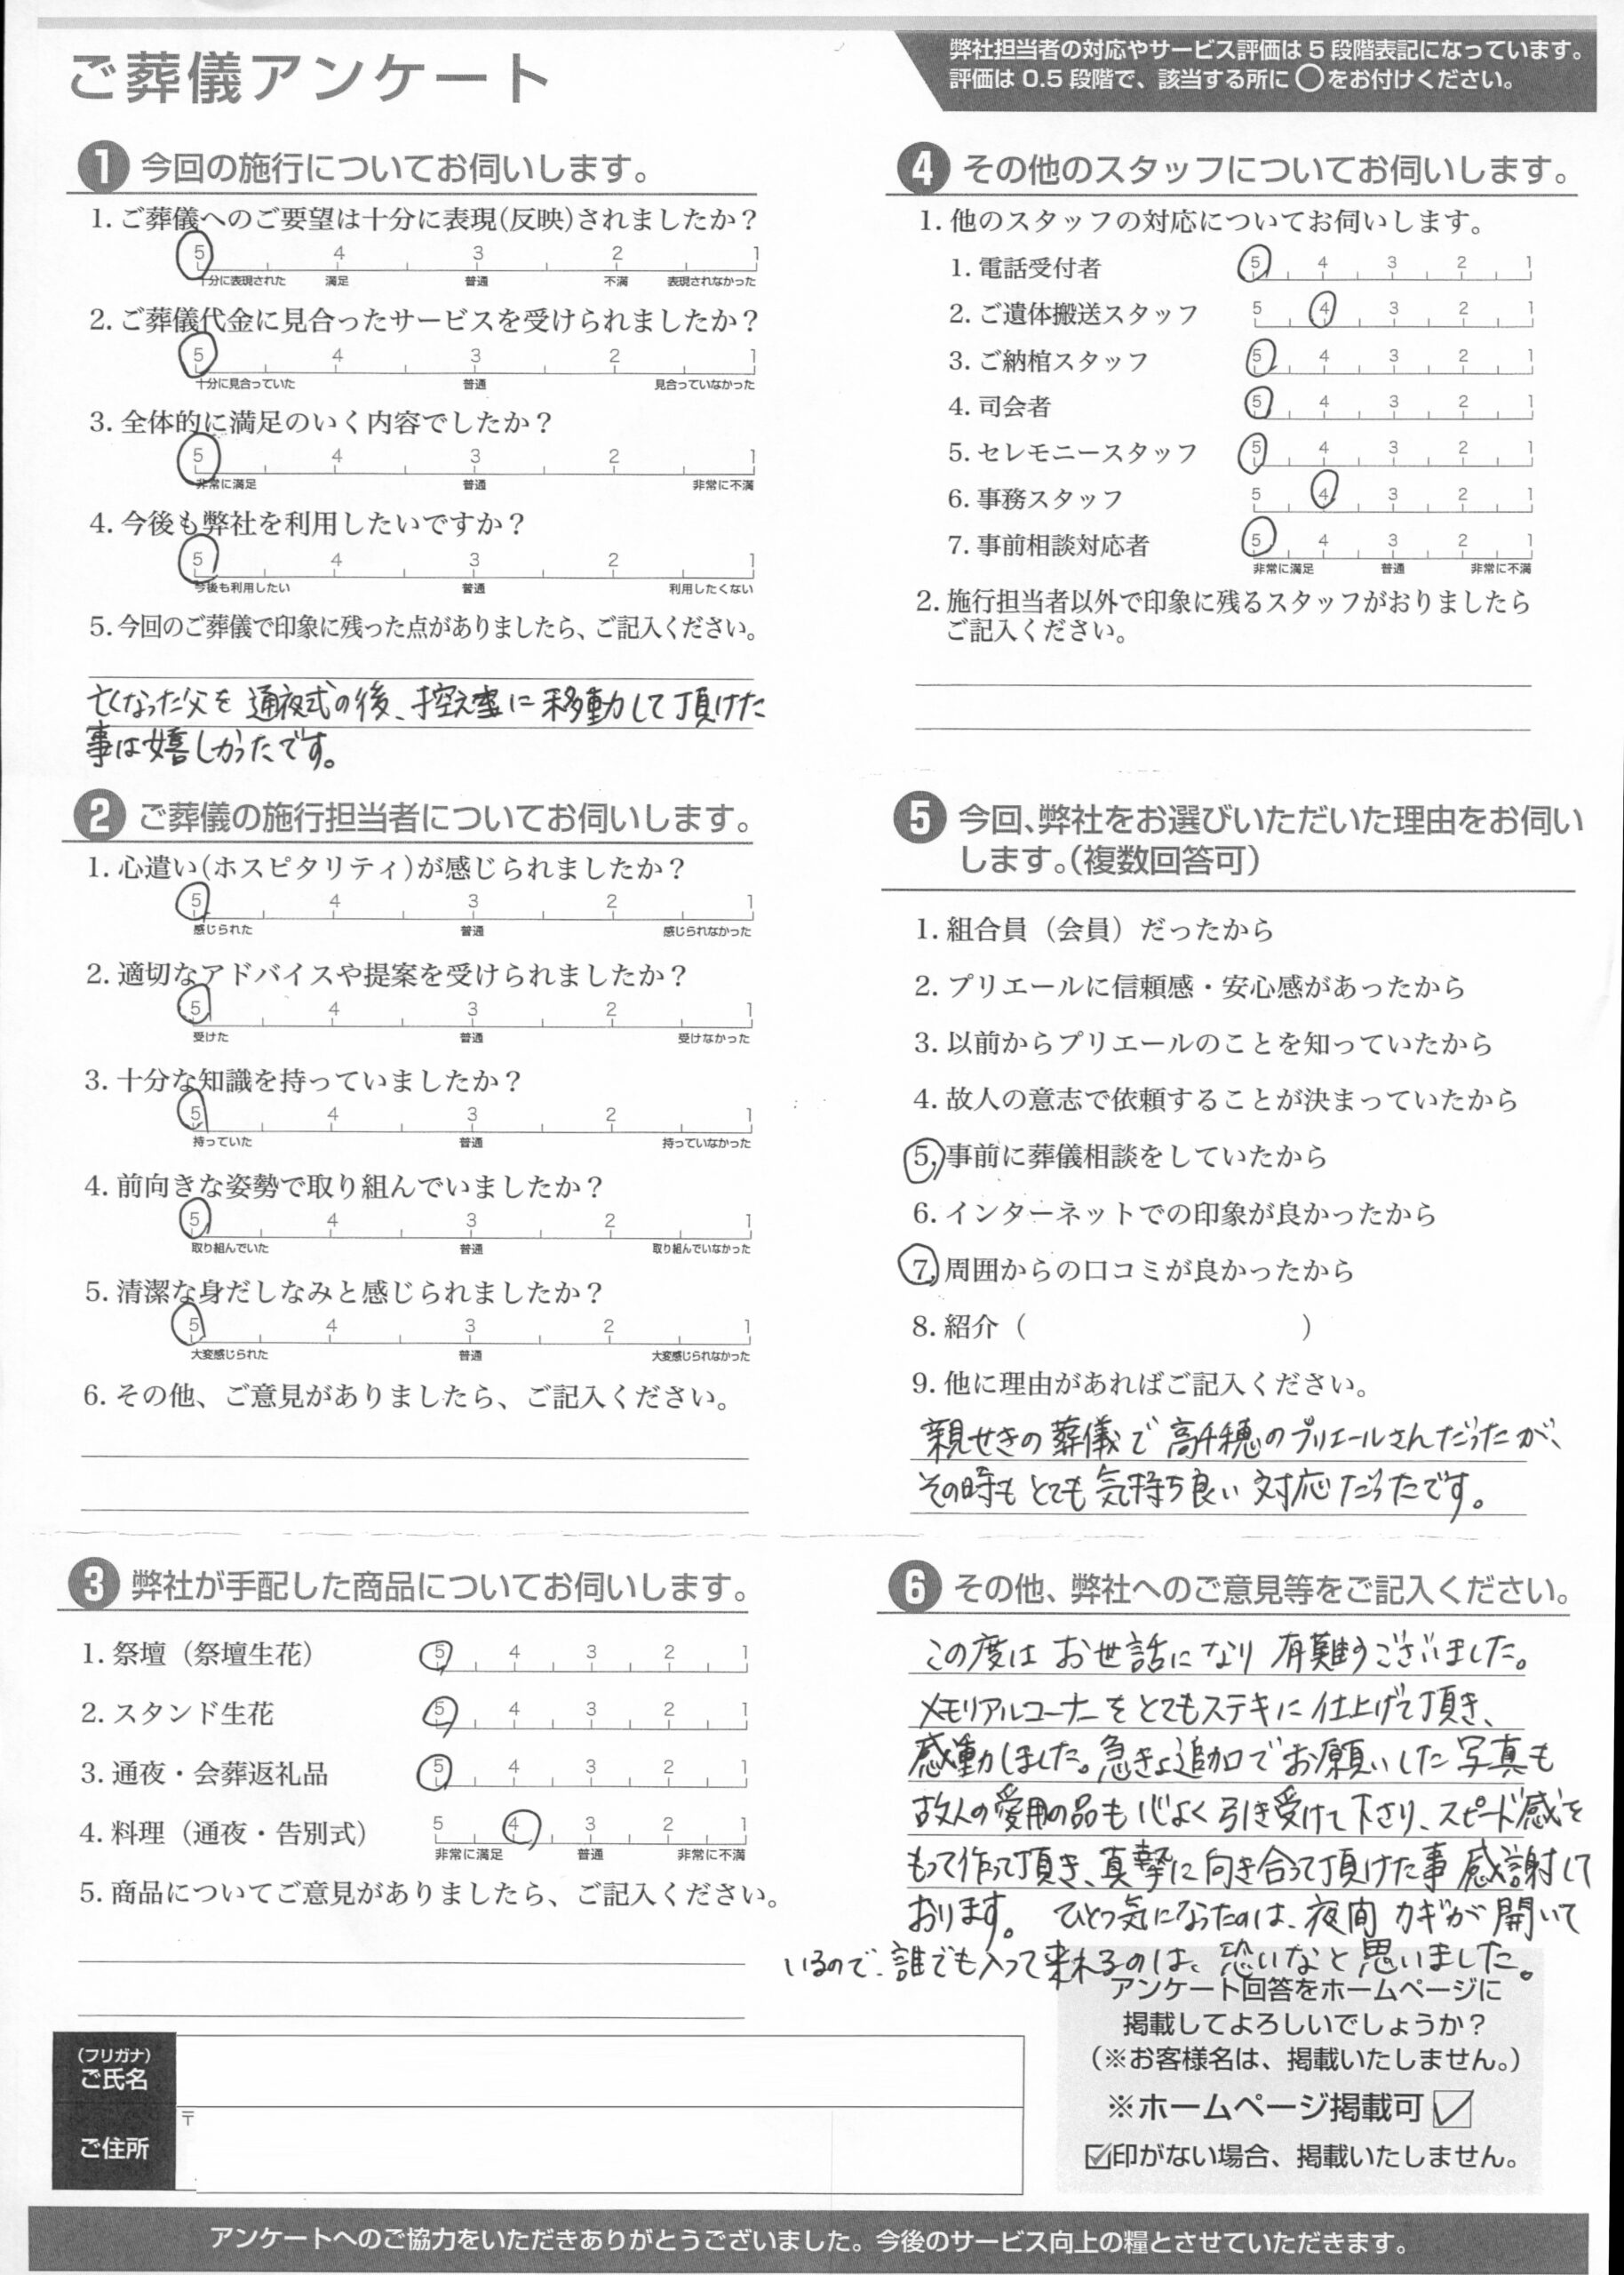 ご葬儀アンケート
弊社担当者の対応やサービス評価は5段階表記になっています。
評価は0.5段階で、該当する所に○をお付けください。
1 今回の施行についてお伺いします。
1. ご葬儀へのご要望は十分に表現(反映)されましたか?
5 4 3 2 1
十分に表現された 満足 普通 不満 表現されなかった
2. ご葬儀代金に見合ったサービスを受けられましたか?
5 4 3 2 1
十分に見合っていた 普通 見合っていなかった
3. 全体的に満足のいく内容でしたか?
5 4 3 2 1
非常に満足 普通 非常に不満
4. 今後も弊社を利用したいですか?
5 4 3 2 1
今後も利用したい 普通 利用したくない
5. 今回のご葬儀で印象に残った点がありましたら、ご記入ください。
亡くなった父を通夜式の後、控え室に移動して頂けた
事は嬉しかったです。
2 ご葬儀の施行担当者についてお伺いします。
1. 心遣い(ホスピタリティ)が感じられましたか?
5 4 3 2 1
感じられた 普通 感じられなかった
2. 適切なアドバイスや提案を受けられましたか?
5 4 3 2 1
受けた 普通 受けなかった
3. 十分な知識を持っていましたか?
5 4 3 2 1
持っていた 普通 持っていなかった
4. 前向きな姿勢で取り組んでいましたか?
5 4 3 2 1
取り組んでいた 普通 取り組んでいなかった
5. 清潔な身だしなみと感じられましたか?
5 4 3 2 1
大変感じられた 普通 大変感じられなかった
6. その他、ご意見がありましたら、ご記入ください。
3 弊社が手配した商品についてお伺いします。
1. 祭壇(祭壇生花) 5 4 3 2 1
2. スタンド生花 5 4 3 2 1
3. 通夜・会葬返礼品 5 4 3 2 1
4. 料理(通夜・告別式) 5 4 3 2 1
非常に満足 普通 非常に不満
5. 商品についてご意見がありましたら、ご記入ください。
4 その他のスタッフについてお伺いします。
1. 他のスタッフの対応についてお伺いします。
1. 電話受付者 5 4 3 2 1
2. ご遺体搬送スタッフ 5 4 3 2 1
3. ご納棺スタッフ 5 4 3 2 1
4. 司会者 5 4 3 2 1
5. セレモニースタッフ 5 4 3 2 1
6. 事務スタッフ 5 4 3 2 1
7. 事前相談対応者 5 4 3 2 1
非常に満足 普通 非常に不満
2. 施行担当者以外で印象に残るスタッフがおりましたら
ご記入ください。
5 今回、弊社をお選びいただいた理由をお伺い
します。(複数回答可)
1. 組合員(会員)だったから
2. プリエールに信頼感・安心感があったから
3. 以前からプリエールのことを知っていたから
4. 故人の意志で依頼することが決まっていたから
5. 事前に葬儀相談をしていたから
6. インターネットでの印象が良かったから
7. 周囲からの口コミが良かったから
8. 紹介( )
9. 他に理由があればご記入ください。
親せきの葬儀で高千穂のプリエールさんだったが、
その時もとても気持ち良い対応だったです。
6 その他、弊社へのご意見等をご記入ください。
この度はお世話になり有難うございました。
メモリアルコーナーをとてもステキに仕上げて頂き、
感動しました。急きょ追加でお願いした写真も
故人の愛用の品も心よく引き受けて下さり、スピード感を
もって作って頂き、真摯に向き合って頂けた事感謝して
おります。 ひとつ気になったのは、夜間カギが開いて
いるので、誰でも入って来れるのは、恐いなと思いました。
アンケート回答をホームページに
掲載してよろしいでしょうか?
(※お客様名は、掲載いたしません。)
※ホームページ掲載可 ☑
☑印がない場合、掲載いたしません。
(フリガナ)
ご氏名
ご住所
〒
アンケートへのご協力をいただきありがとうございました。今後のサービス向上の糧とさせていただきます。